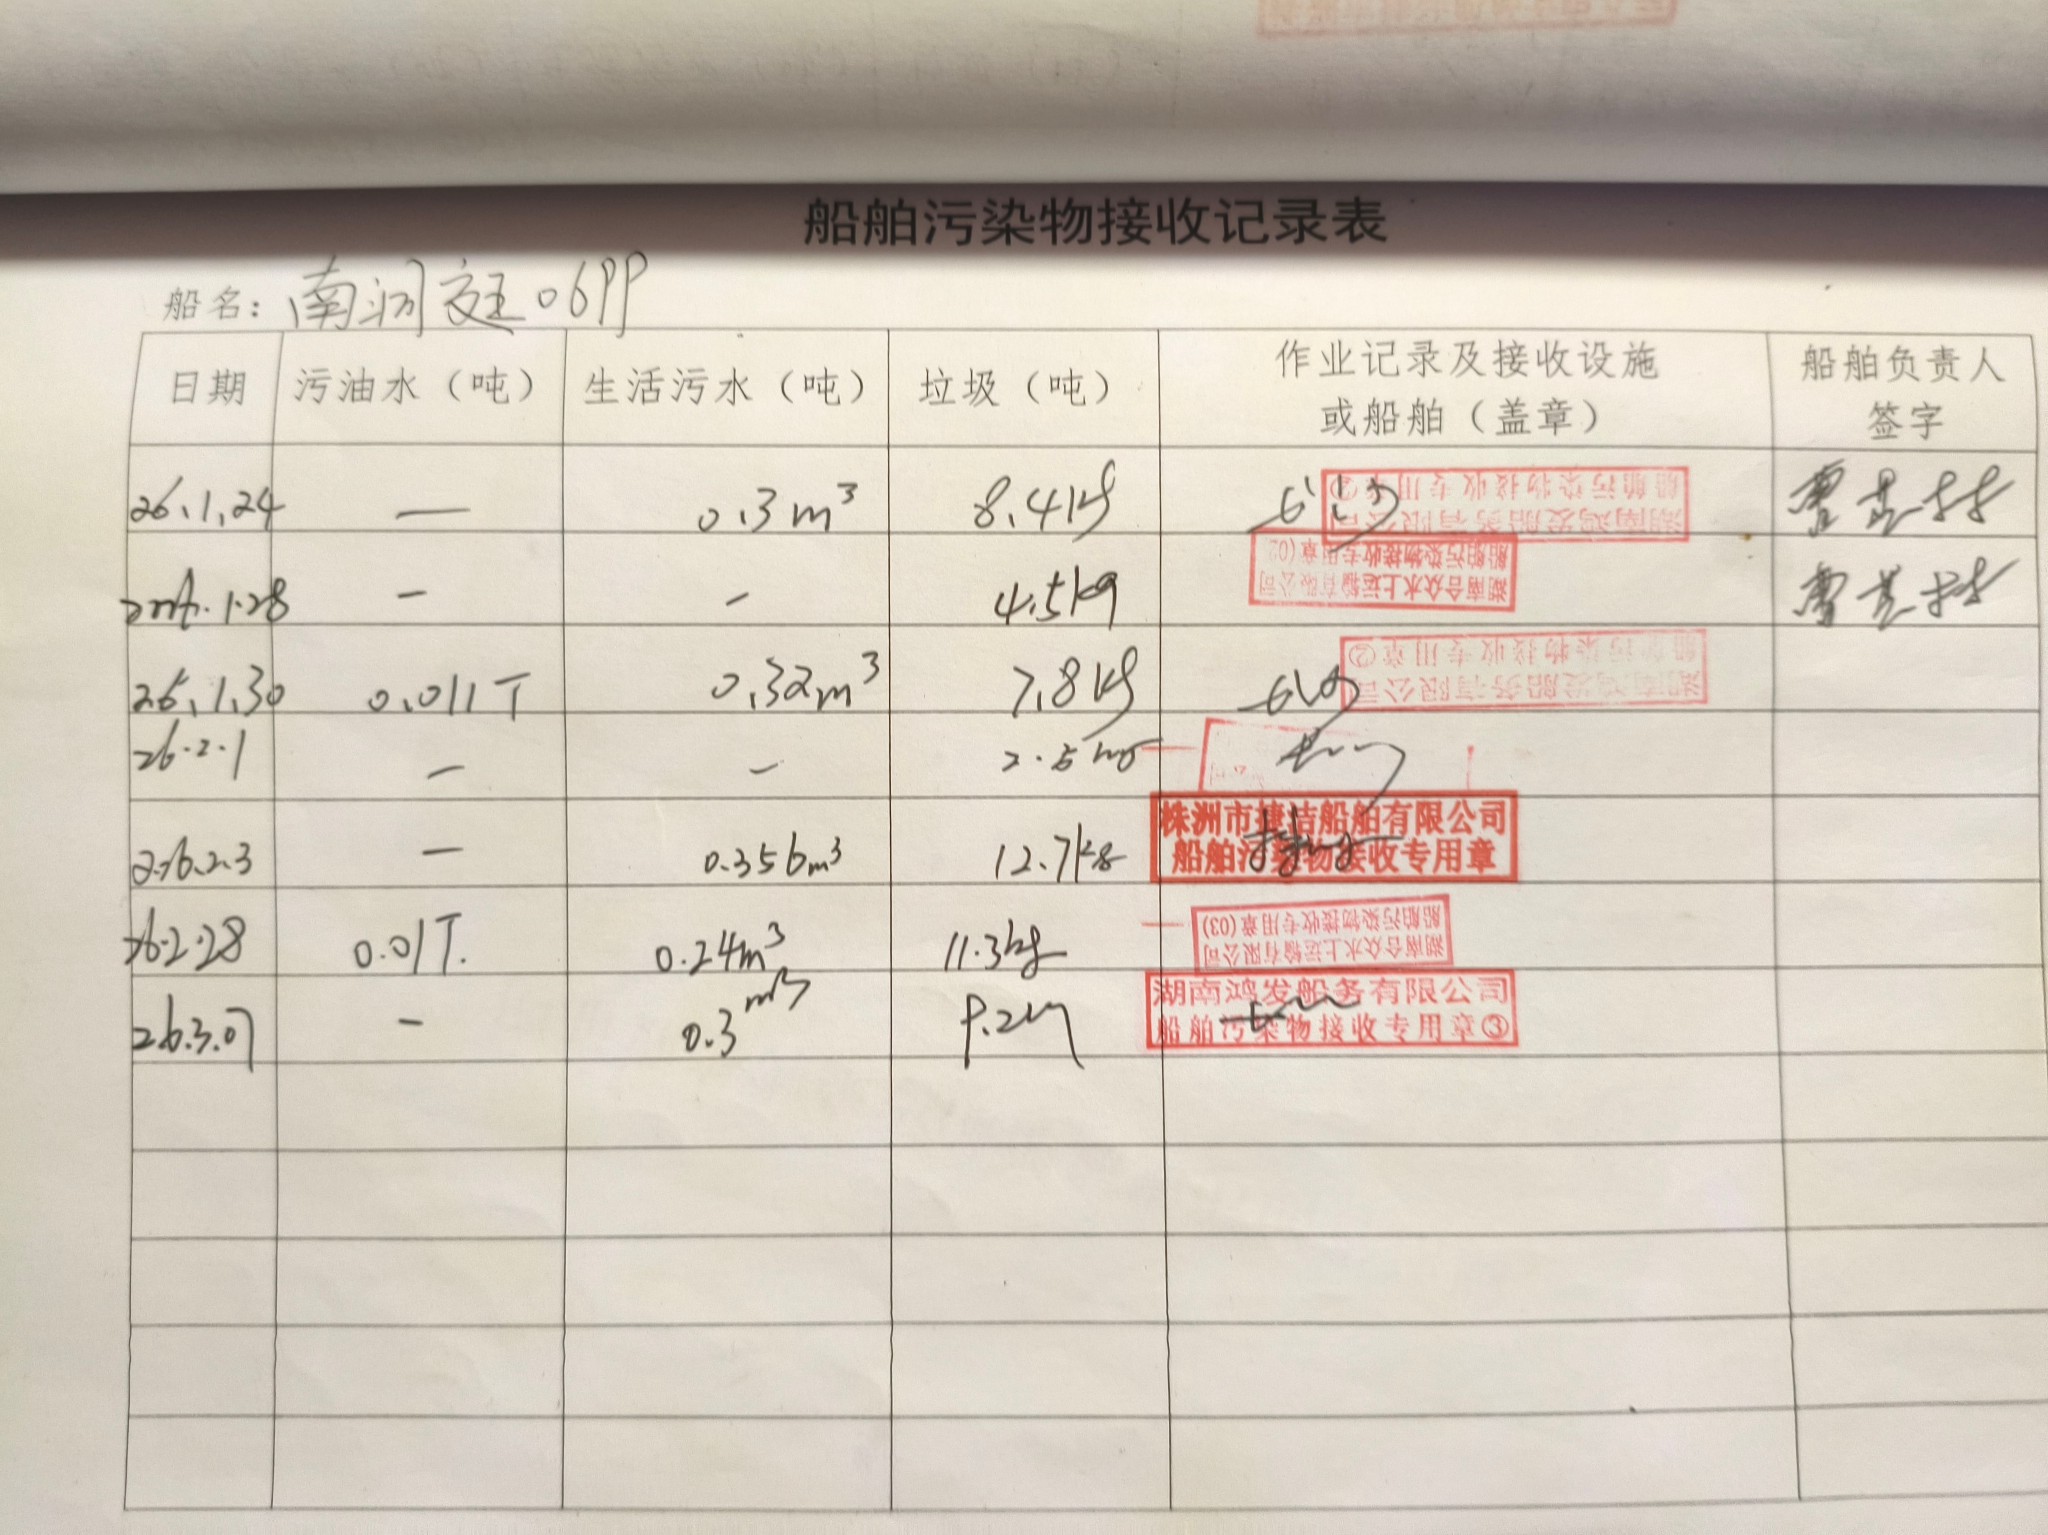 船舶污染物接收记录表
船名：南洞庭0699
日期 污油水（吨） 生活污水（吨） 垃圾（吨） 作业记录及接收设施或船舶（盖章） 船舶负责人签字
26.1.24 — 0.3m³ 8.4kg 湖南鸿发船务有限公司 船舶污染物接收专用章②
1.28 — — 4.5kg 湖南合众水上运输有限公司 船舶污染物接收专用章(02
26.1.30 0.011T 0.32m³ 7.8kg 湖南鸿发船务有限公司 船舶污染物接收专用章②
26.2.1 — — 2.5
26.2.3 — 0.356m³ 12.7kg 株洲市捷洁船舶有限公司 船舶污染物接收专用章
26.2.28 0.01T. 0.24m³ 11.3kg 湖南合众水上运输有限公司 船舶污染物接收专用章(03)
26.3.07 — 0.3m³ 9.2kg 湖南鸿发船务有限公司 船舶污染物接收专用章③